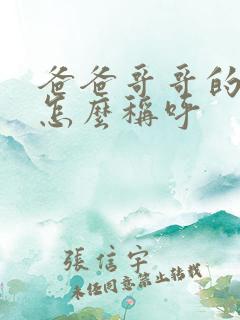 爸爸哥哥的
怎麽稱呼
張信宇
未经同意禁止转载